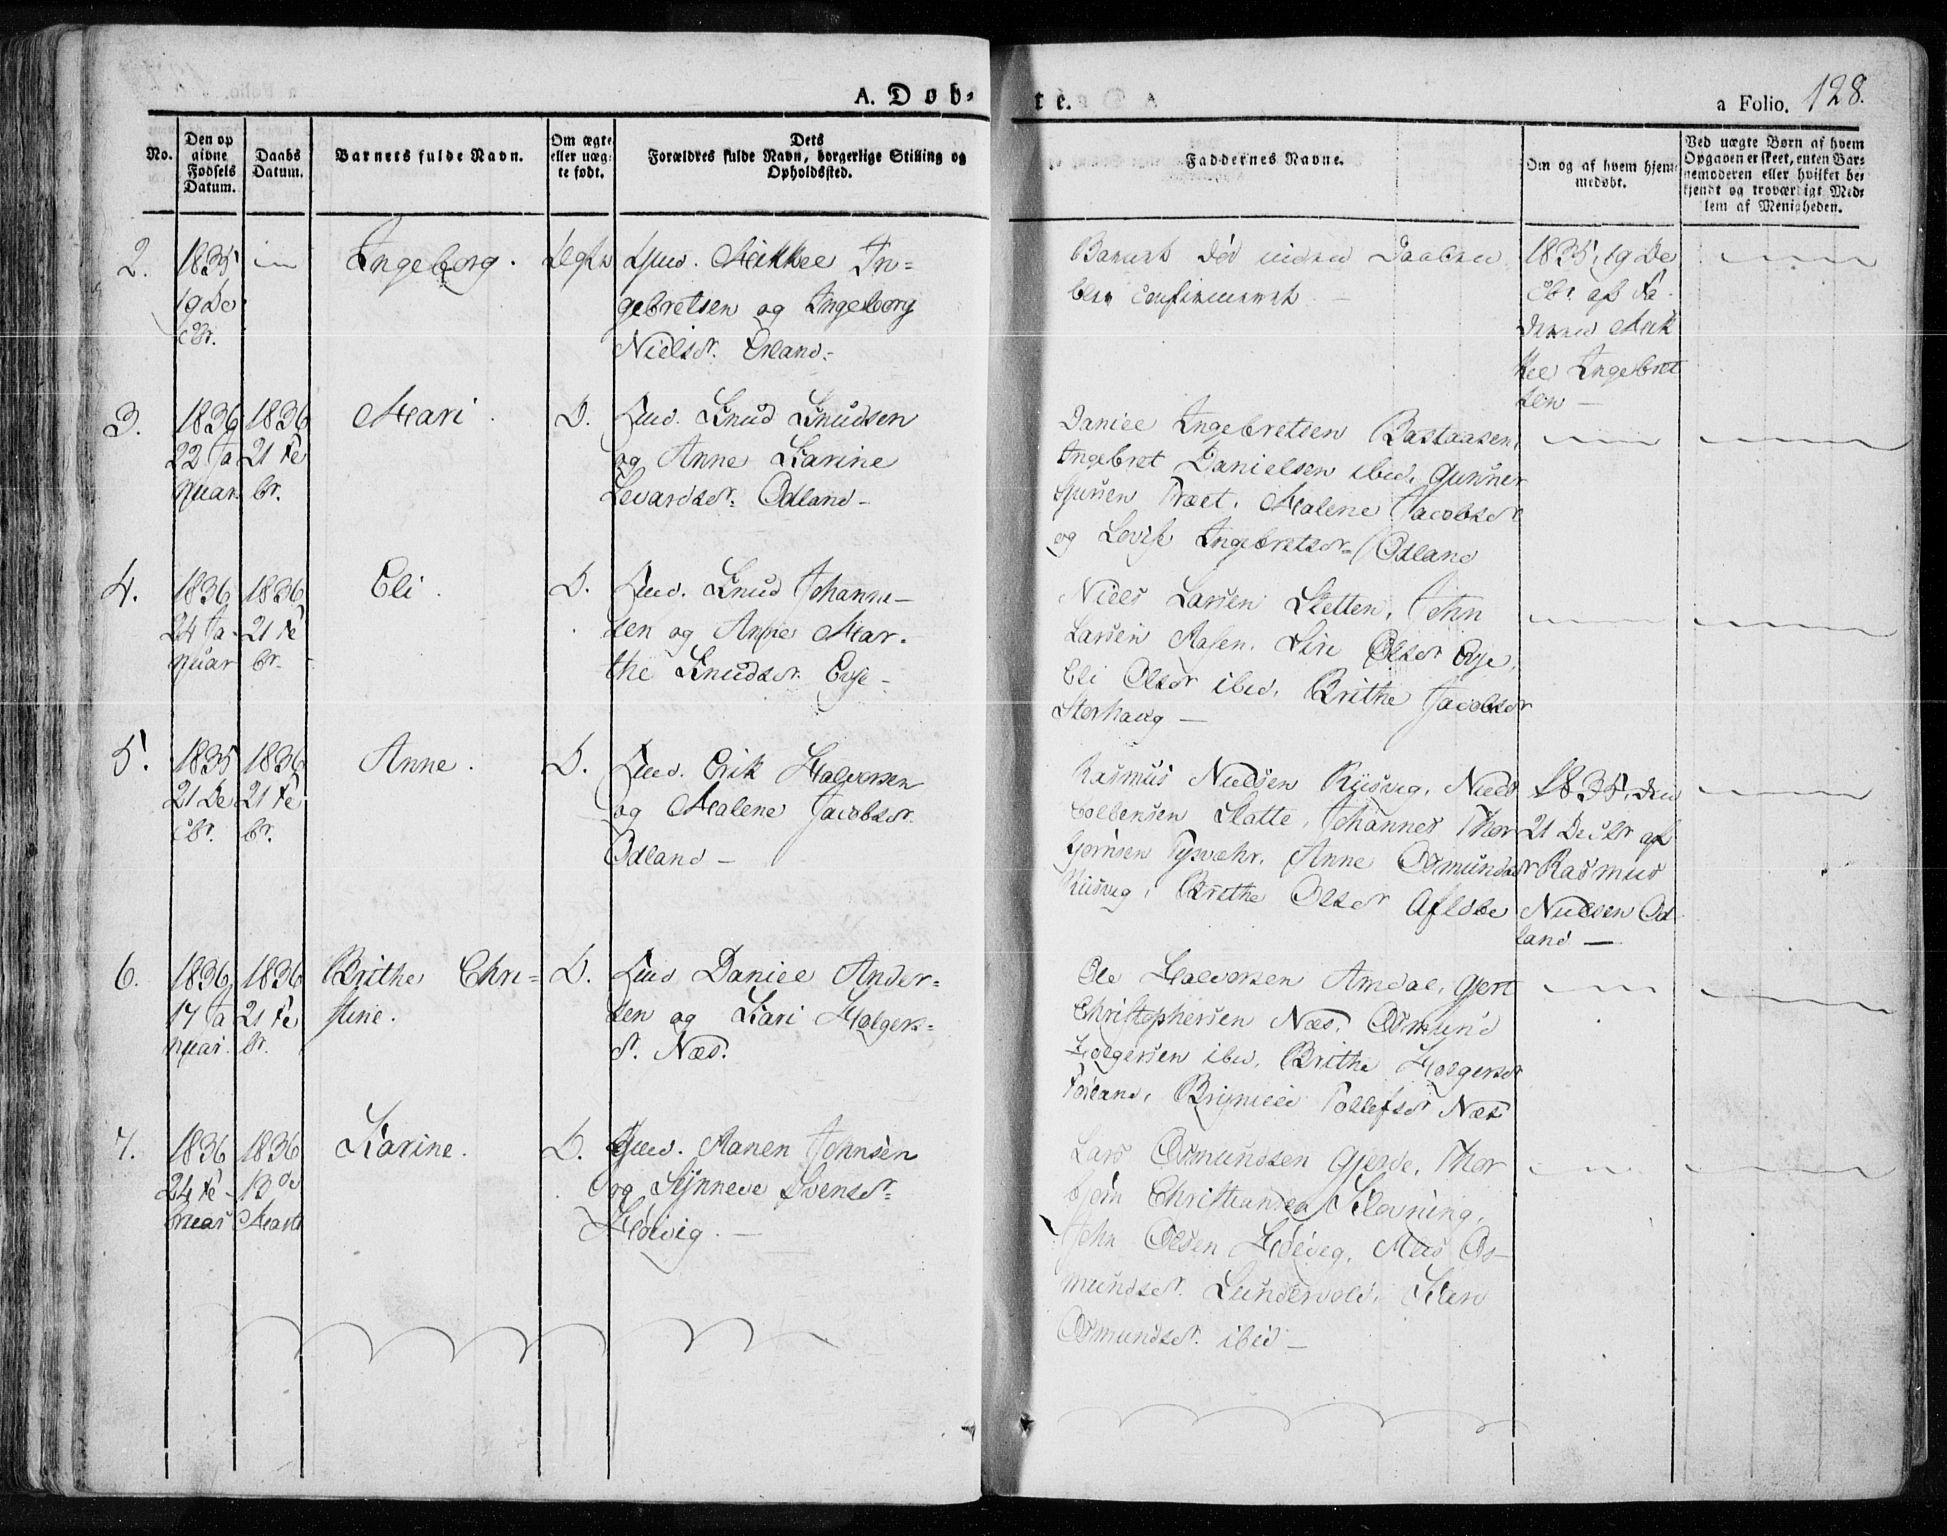 A. Døb-
te.
a Folio. 128.
No.
Den op
givne
Fødsels
Datum.
Daabs
Datum.
Barnets fulde Navn.
Om ægte
eller uæg-
te født.
Dets
Forældres fulde Navn, borgerlige Stilling og
Opholdssted.
Faddernes Navne.
Om og af hvem hjem-
medøbt.
Ved uægte Børn af hvem
Opgaven er skeet, enten Bar-
nemoderen eller hvilket be-
kjendt og troværdigt Med-
lem af Menigheden.
2.
1835
19 De
cbr.
Ingeborg.
Ægte
Mikkel In=
gebretsen og Ingeborg
Nielsdr.
Barnet død uiden Daaben
blev confirmeret
1835, 19 De
cbr. af Fa
deren Mik
kel Ingebret
sen
3.
1836
22 Ja
nuar
1836
21 Fe
br.
Mari
D.
Knud Knudsen
og Anne Karine
Levardsdr. Odland
Daniel Ingebretsen Bastaasen,
Ingebret Danielsen ibid, Gunner
Træet, Malene Jacobsdr
og Ingebretsdr Odland
4.
1836
24 Ja
nuar
1836
21 Fe
br.
Eli
D.
Knud Johanne
sen og Anne Mar
the Knudsdr. Erje
Niels Larsen Sletten, John
Larsen Aasen, Siri Olsdr Erje,
Eli Olsdr ibid, Brithe Jacobsdr
Storhaug
5.
1835
21 De
cbr.
1836
21 Fe
br.
Anne.
D.
Erik Halvorsen
og Malene Jacobsdr.
Odland
Rasmus Nielsen Riisvig, Niels
Colbensen Slatte, Johannes Thor
bjørnsen Tysvæhr, Anne Osmundsdr
Riisvig, Brithe Olsdr
1835, den
21 Decbr af
Rasmus
Nielsen Od
land
6.
1836
17 Ja
nuar.
1836
21 Fe
br.
Brithe Chri=
stine.
D.
Daniel Ander-
sen og Kari Holgers-
dr. Næs.
Ole Halvorsen Amdal, Gert
Christophersen Næs, Osmund
Holgersen ibid, Brithe Holgersdr
Følland, Tollefsdr Næs
7.
1836
24 Fe
bruar
1836
13de
Marts
Karine.
D.
Aanen Johnsen
og Synneve Svensdr
Høivig.
Lars Osmundsen Gjerde, Thor
bjørn Christiansen
John Olsen Høiveg, Os-
mundsdr. Lundervold,
Osmundsdr. ibid